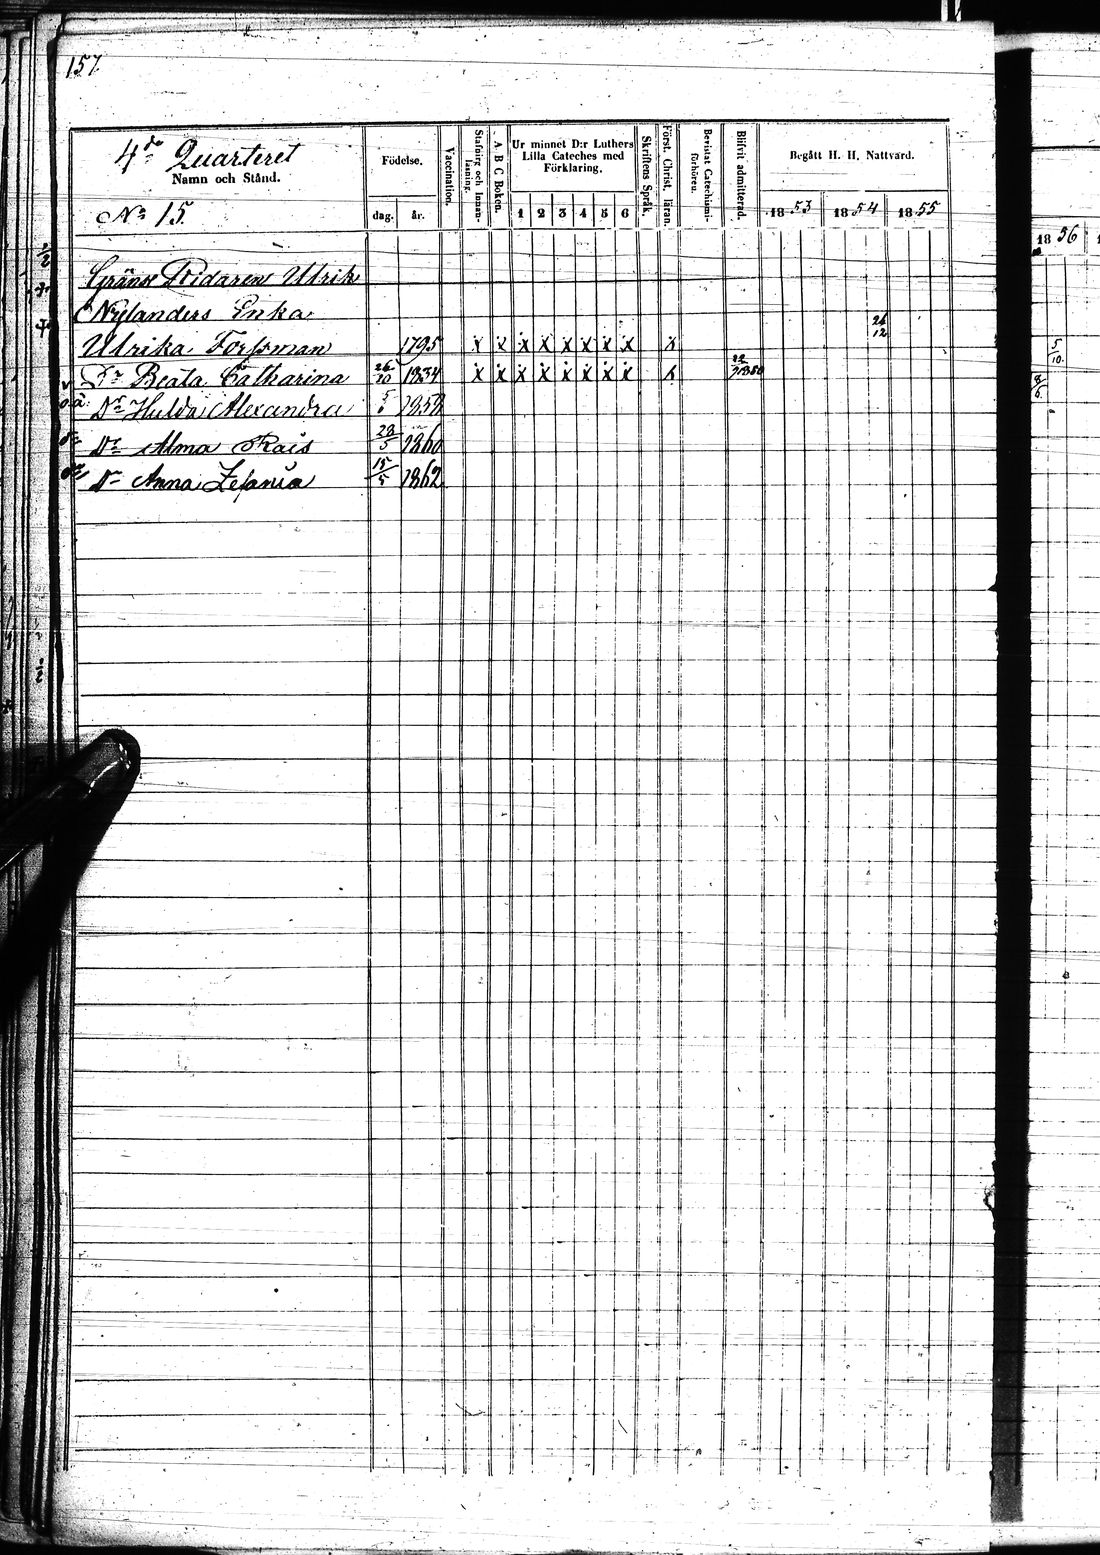 157
4de Quarteret
Namn och Stånd.
No 15.
Födelse.
dag. år.
Vaccination.
Stafning och Innan-läsning.
A B C Boken.
Ur minnet D:r Luthers
Lilla Cateches med
Förklaring.
1 2 3 4 5 6
Skriftens Språk.
Först. Christ. läran.
Bevistat Catechismi-förhören.
Blifvit admitterad.
Begått H. H. Nattvard.
1853 1854 1855
1856
Gränse Ridaren Ulrik
Nylanders Enka
26/12
Ulrika Forssman 1795 x x x x x x x x x 5/10
Dr Beata Catharina 26/10 1834 x x x x x x x x x 8/6
Dr Hulda Alexandra 1858
Dr Alma Rais 28/5 1860
Dr Anna Zefania 15/5 1862